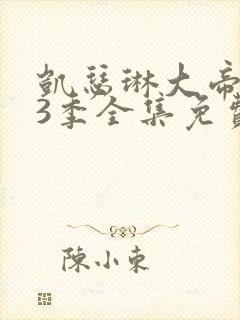 凱瑟琳大帝
3季全集免費
陳小東